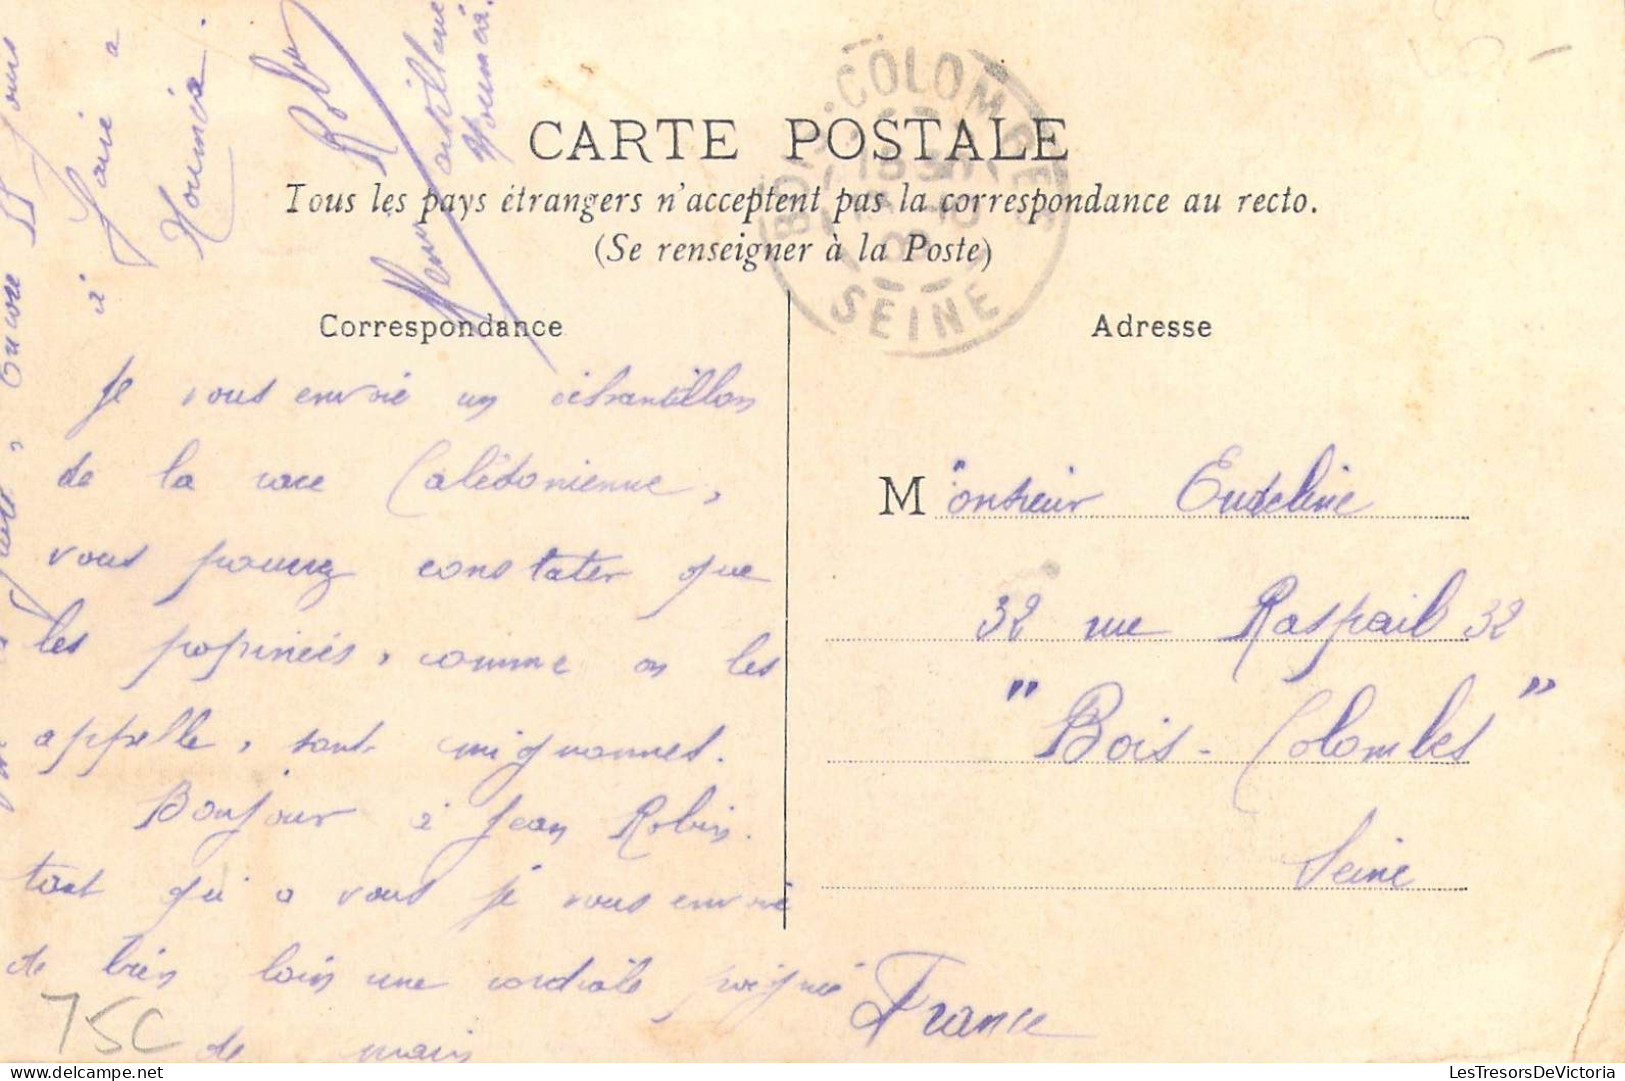 CARTE POSTALE
Tous les pays étrangers n'acceptent pas la correspondance au recto.
(Se renseigner à la Poste)
Correspondance
Je vous envoie un échantillon
de la race Calédonienne,
vous pouvez constater que
les popinées, comme on les
appelle, sont mignonnes.
Bonjour à Jean Robin.
tant qu'à vous je vous envoie
de bien loin une cordiale poignée
de main
encore 15 jours
à faire à
Nouméa.
Robin
Nouméa.
Adresse
Monsieur Eudeline
32 rue Raspail 32
"Bois-Colombes"
Seine
France
BOIS-COLOMBES
SEINE
TSC
LesTresorsDeVictoria.com